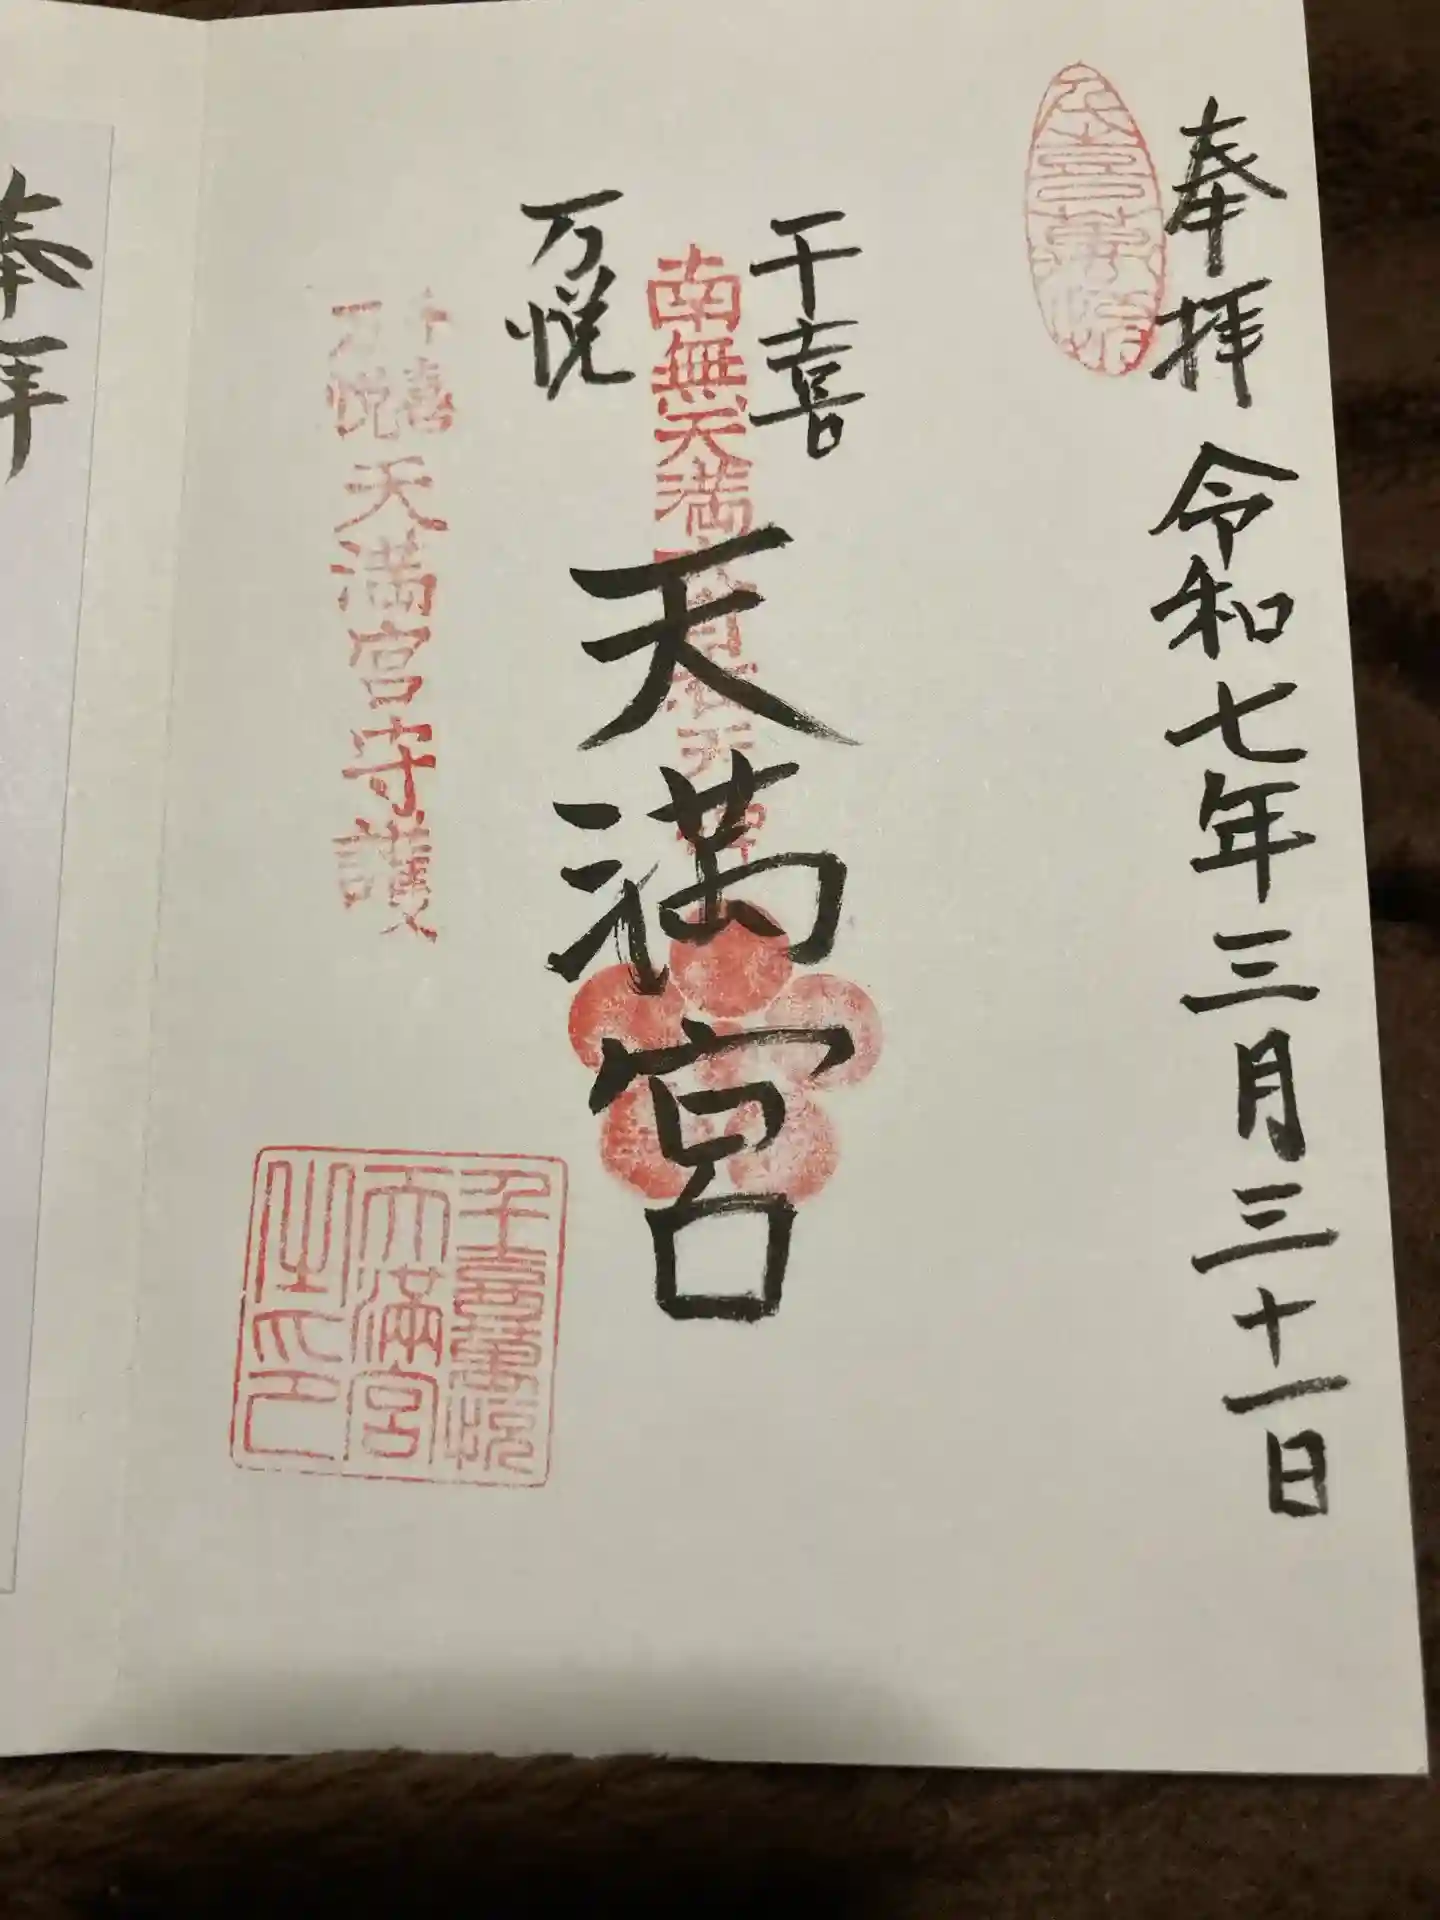 奉拝 令和七年三月三十一日
千喜
万悦
天満宮
南無天満大自在天神
千喜
万悦
天満宮守護
千喜萬悦
天満宮
之印
千喜萬悦
奉拝